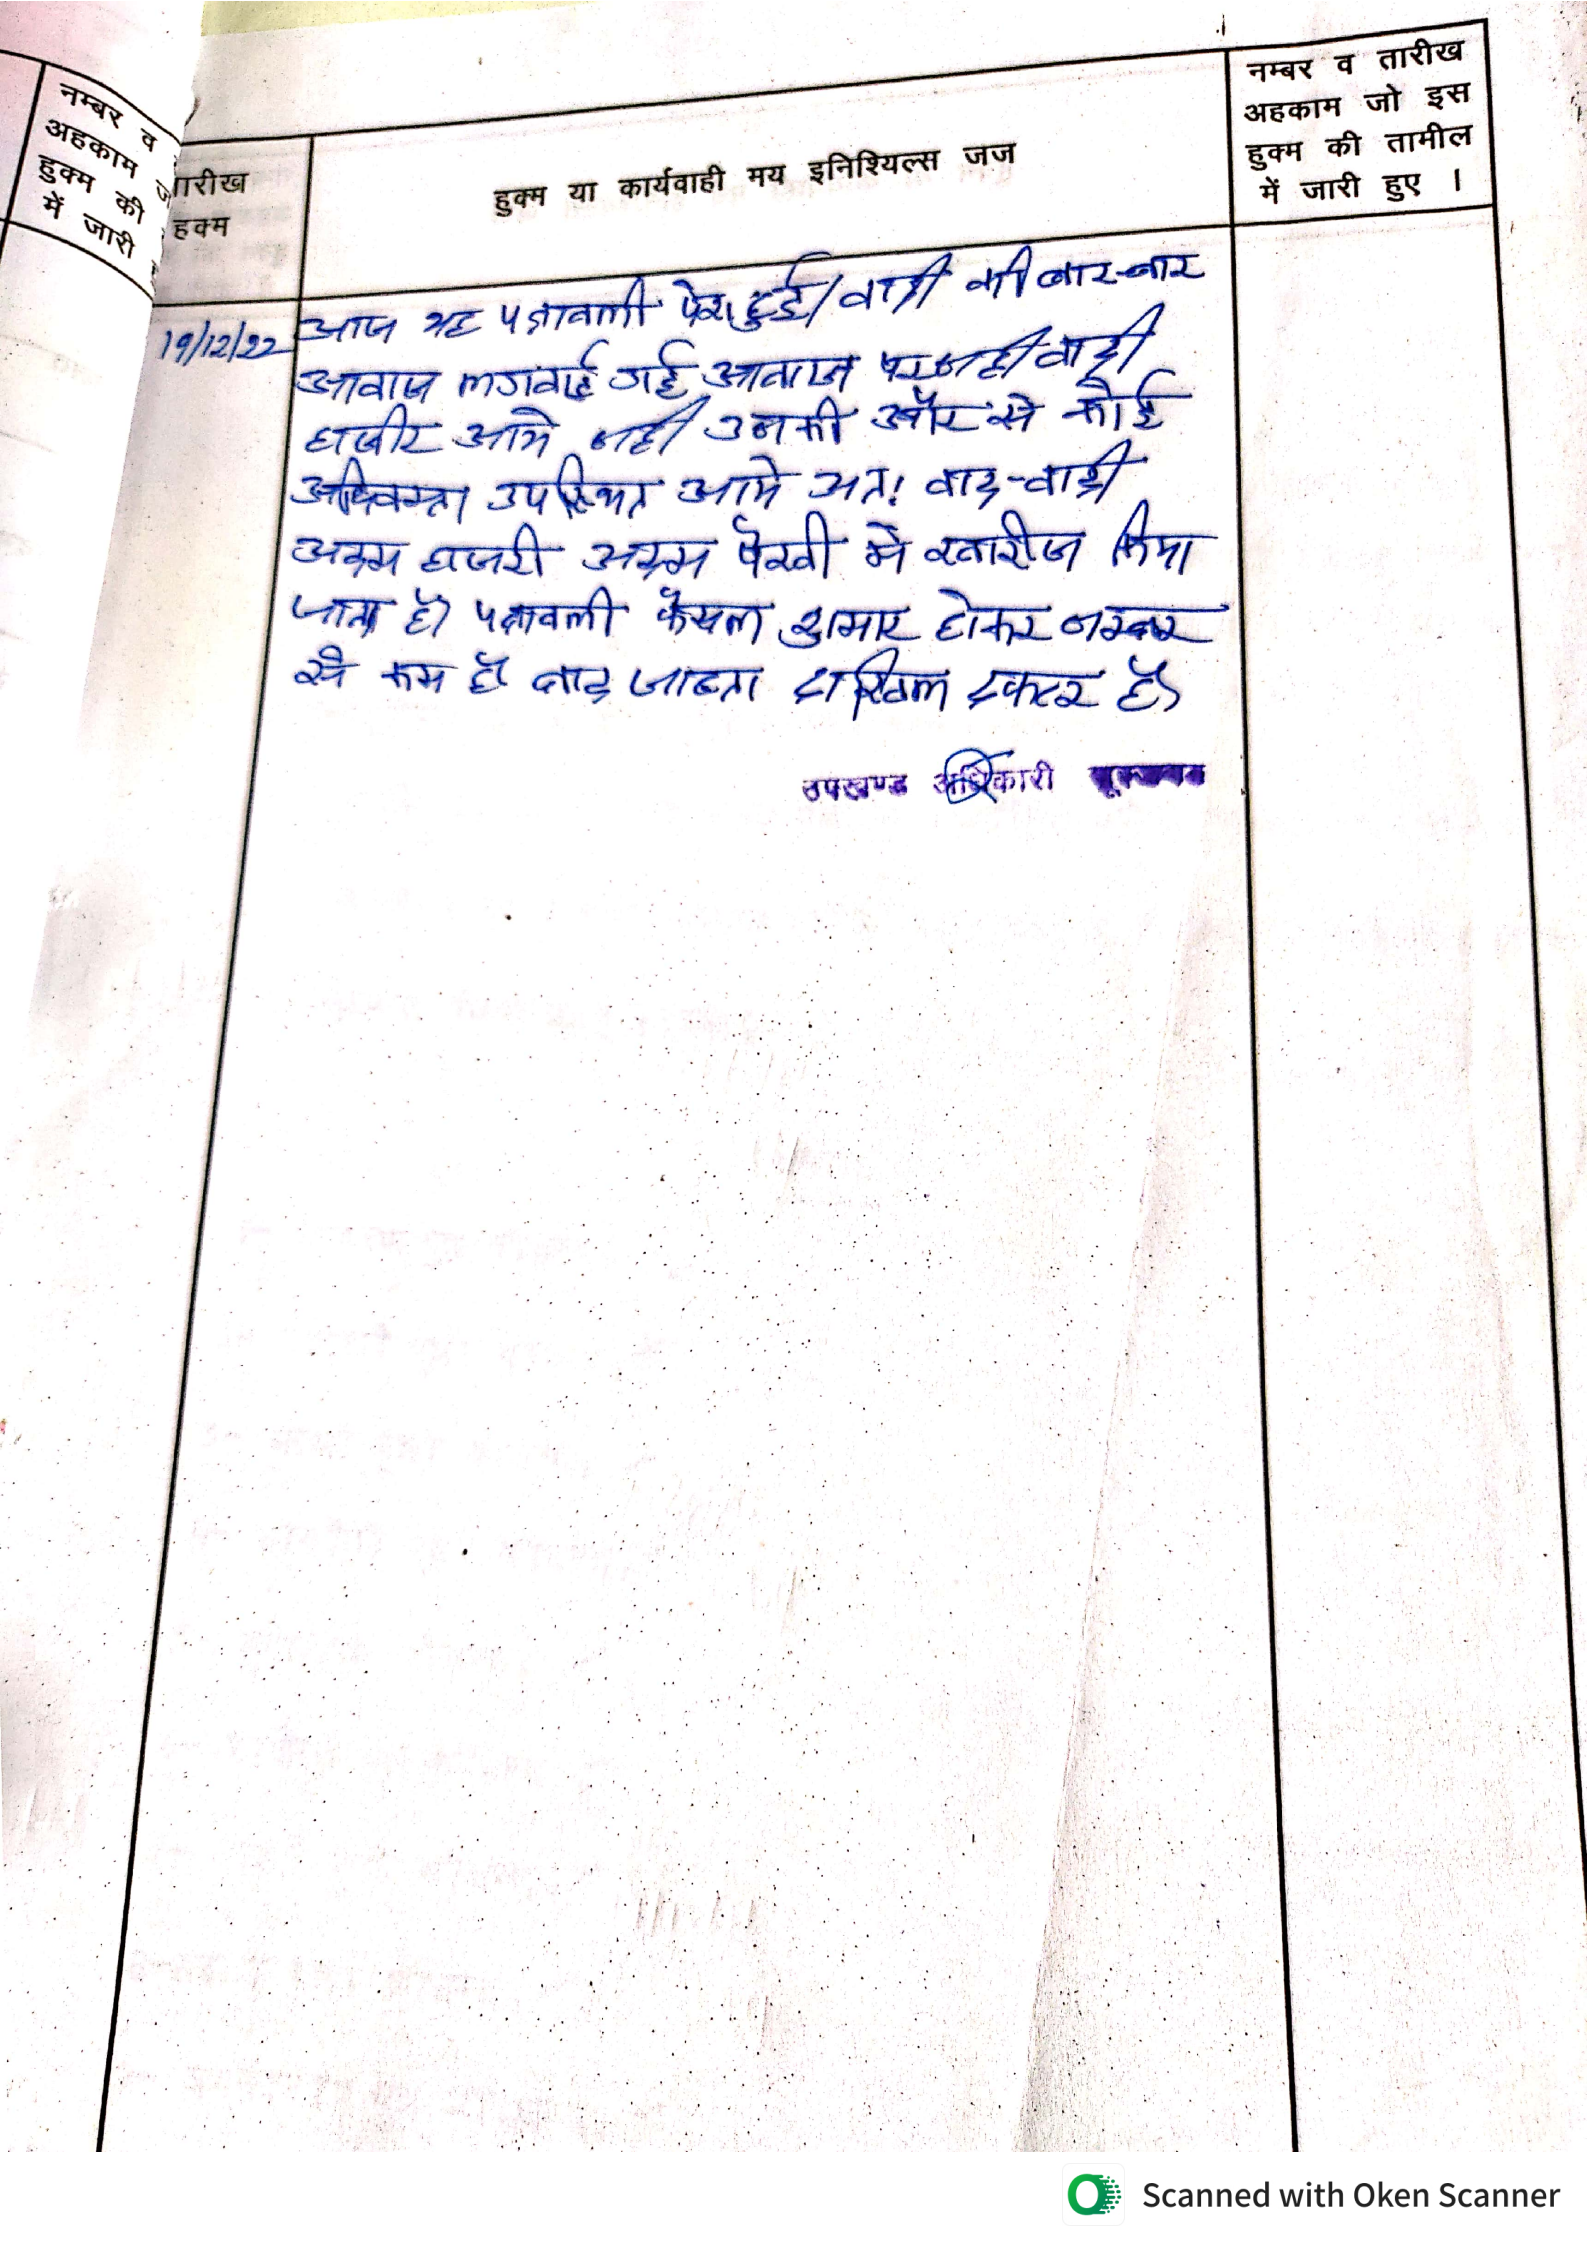 नम्बर व
अहकाम ज
हुक्म की
में जारी
तारीख
हुक्म
हुक्म या कार्यवाही मय इनिश्यिल्स जज
नम्बर व तारीख
अहकाम जो इस
हुक्म की तामील
में जारी हुए ।
19/12/22
आज यह पत्रावली पेश हुई/ वादी की बार-बार
आवाज लगवाई गई आवाज पर नही वादी
हाजीर आये नही उनकी और से कोई
अधिवक्ता उपस्थित आये अत! वाद-वादी
अदम हाजरी अदम पैरवी मे खारीज किया
जाता है। पत्रावली फैसल शुमार होकर नम्बर
से कम हो बाद जाब्ता दाखिल दफ्तर हो।
उपखण्ड अधिकारी
Scanned with Oken Scanner